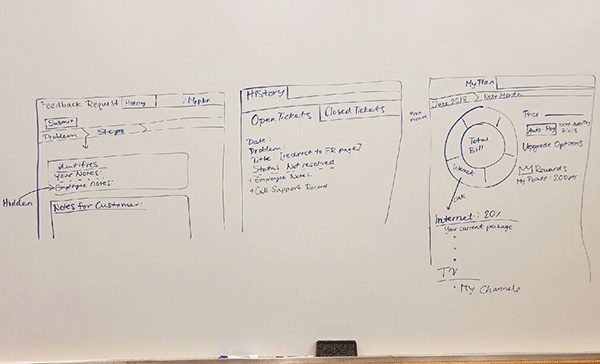 Feedback Request History My plan
Submit
Problem Steps
Identifies
Your Notes:
Employee notes:
Hidden
Notes for Customer:
History
Open Tickets Closed Tickets
Date:
Problem:
Title [redirect to FR page]
Status: Not resolved
+ Employee Notes
+ Call Support Record
My Plan
2018 Next Month
Total
Bill
Internet
Price
Auto Pay
Upgrade Options
Rewards
My Points: 200pts
Internet: 20%
Your current package
TV
• My Channels